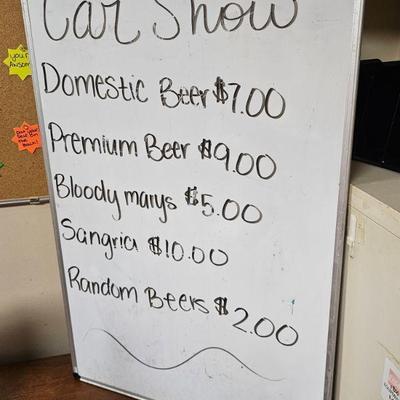 Car Show
Domestic Beer $7.00
Premium Beer $9.00
Bloody marys $5.00
Sangria $10.00
Random Beers $2.00
your
Awesome